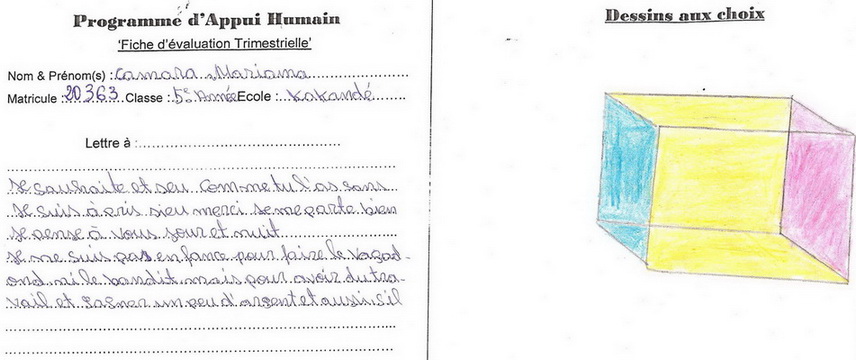 Programme d'Appui Humain
'Fiche d'évaluation Trimestrielle'
Nom & Prénom(s) : Camara Mariama
Matricule : 20363 Classe : 5e Année Ecole : Kakandé
Lettre à :
Je souhaite et seu comme tu l'as sans
Je suis à pris dieu merci Je me porte bien
Je pense à vous jour et nuit
Je me suis pas en fance pour faire le vagad-
ond ni le bandit mais pour avoir du tra-
vail et gagner un peu d'argent et aussi s'il
Dessins aux choix